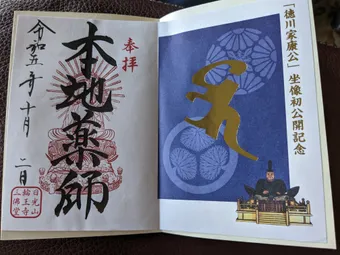 「徳川家康公」坐像初公開記念
奉拝
本地薬師
令和五年十月二日
日光山
輪王寺
三仏堂